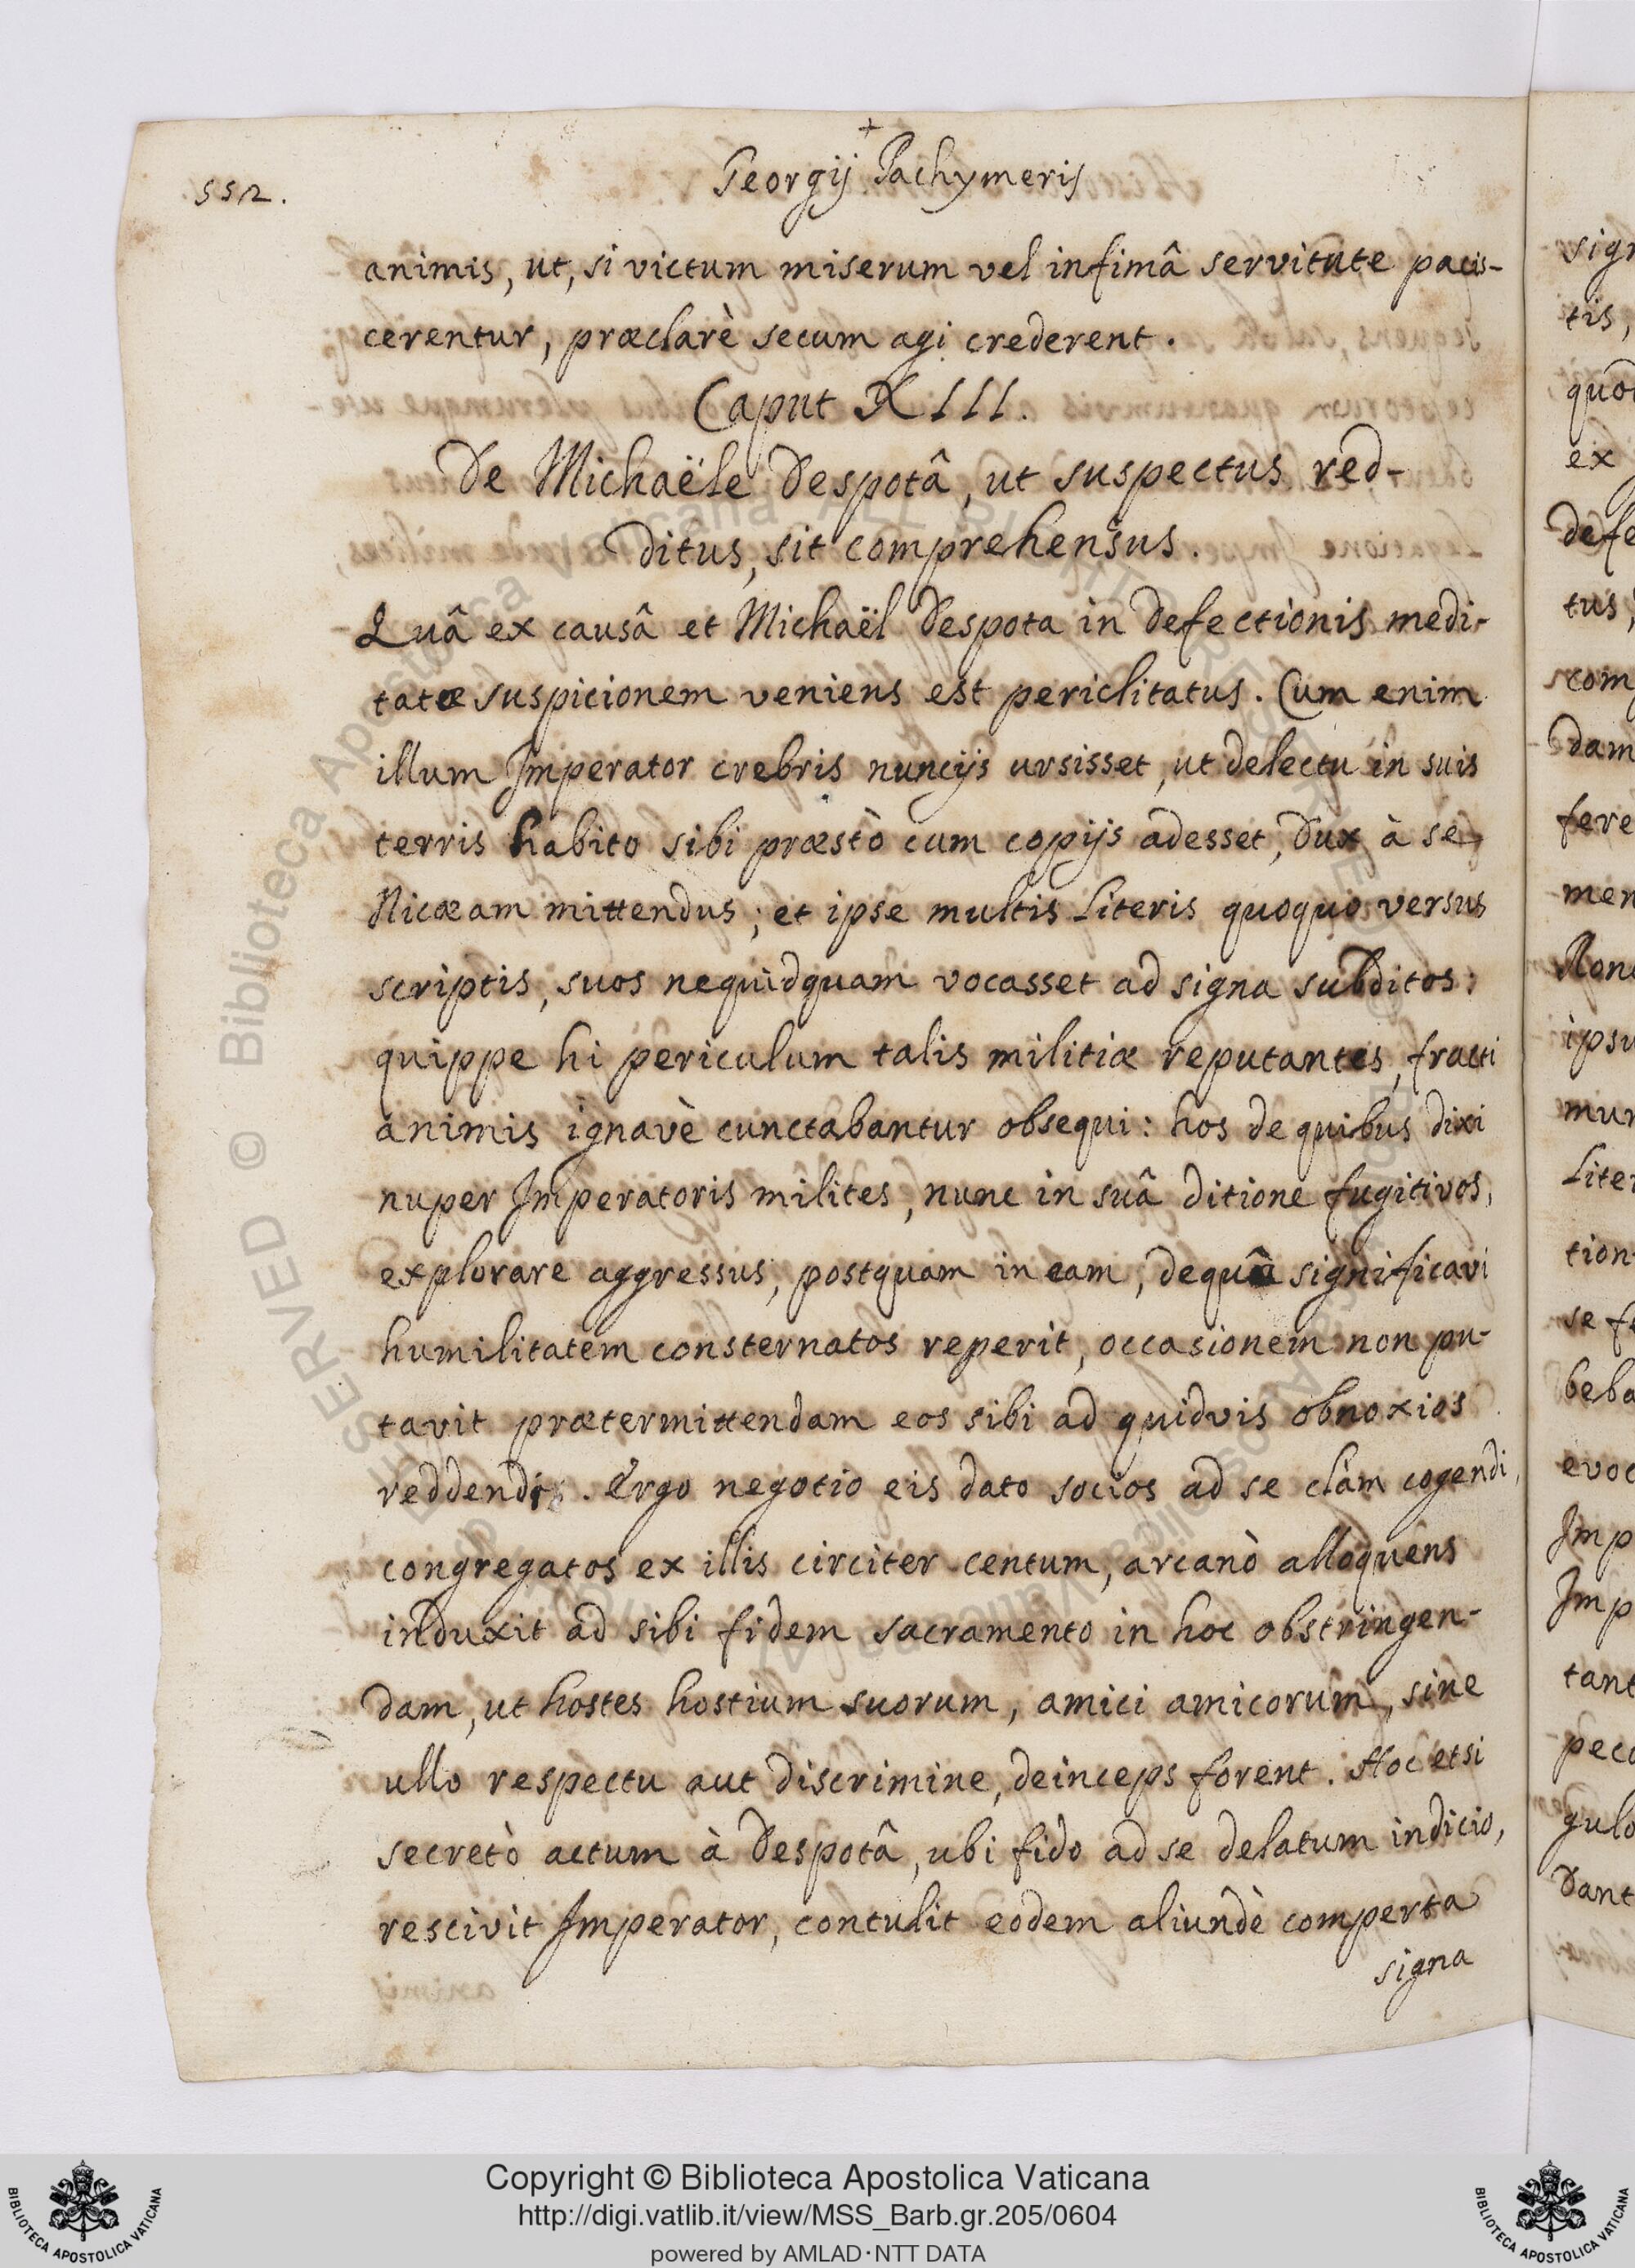 +
552.
Georgij Pachymeris
animis, ut, si victum miserum vel infimâ servitute pacis-
cerentur, præclarè secum agi crederent.
Caput XIII.
De Michaële Despotâ, ut suspectus red-
ditus, sit comprehensus.
Quâ ex causâ et Michaël Despota in defectionis medi-
tatæ suspicionem veniens est periclitatus. Cum enim
illum Imperator crebris nuncijs ursisset, ut delectu in suis
terris habito sibi præstò cum copijs adesset, Dux à se
Nicæam mittendus; et ipse multis Literis quoquo versus
scriptis, suos nequidquam vocasset ad signa subditos:
quippe hi periculum talis militiæ reputantes, fracti
animis ignavè cunctabantur obsequi: hos de quibus dixi
nuper Imperatoris milites, nunc in suâ ditione fugitivos,
explorare aggressus, postquam in eam, de quâ significavi
humilitatem consternatos reperit, occasionem non pu-
tavit prætermittendam eos sibi ad quidvis obnoxios
reddendi. Ergo negotio eis dato socios ad se clàm cogendi,
congregatos ex illis circiter centum, arcanò alloquens
induxit ad sibi fidem sacramento in hoc obstringen-
dam, ut hostes hostium suorum, amici amicorum, sine
ullo respectu aut discrimine, deinceps forent. Hoc etsi
secretò actum à Despotâ, ubi fido ad se delatum indicio,
rescivit Imperator, contulit eodem aliundè comperta
signa
sign
tis,
quod
ex
defe
tus,
com
dam
fere
men
ipsu
mun
Liter
tion
se fe
beba
evoc
Imp
Imp
tant
pecc
gulo
dant
© Biblioteca Apostolica Vaticana ALL RIGHTS RESERVED
Copyright © Biblioteca Apostolica Vaticana
http://digi.vatlib.it/view/MSS_Barb.gr.205/0604
powered by AMLAD·NTT DATA
BIBLIOTECA APOSTOLICA VATICANA
BIBLIOTECA APOSTOLICA VATICANA